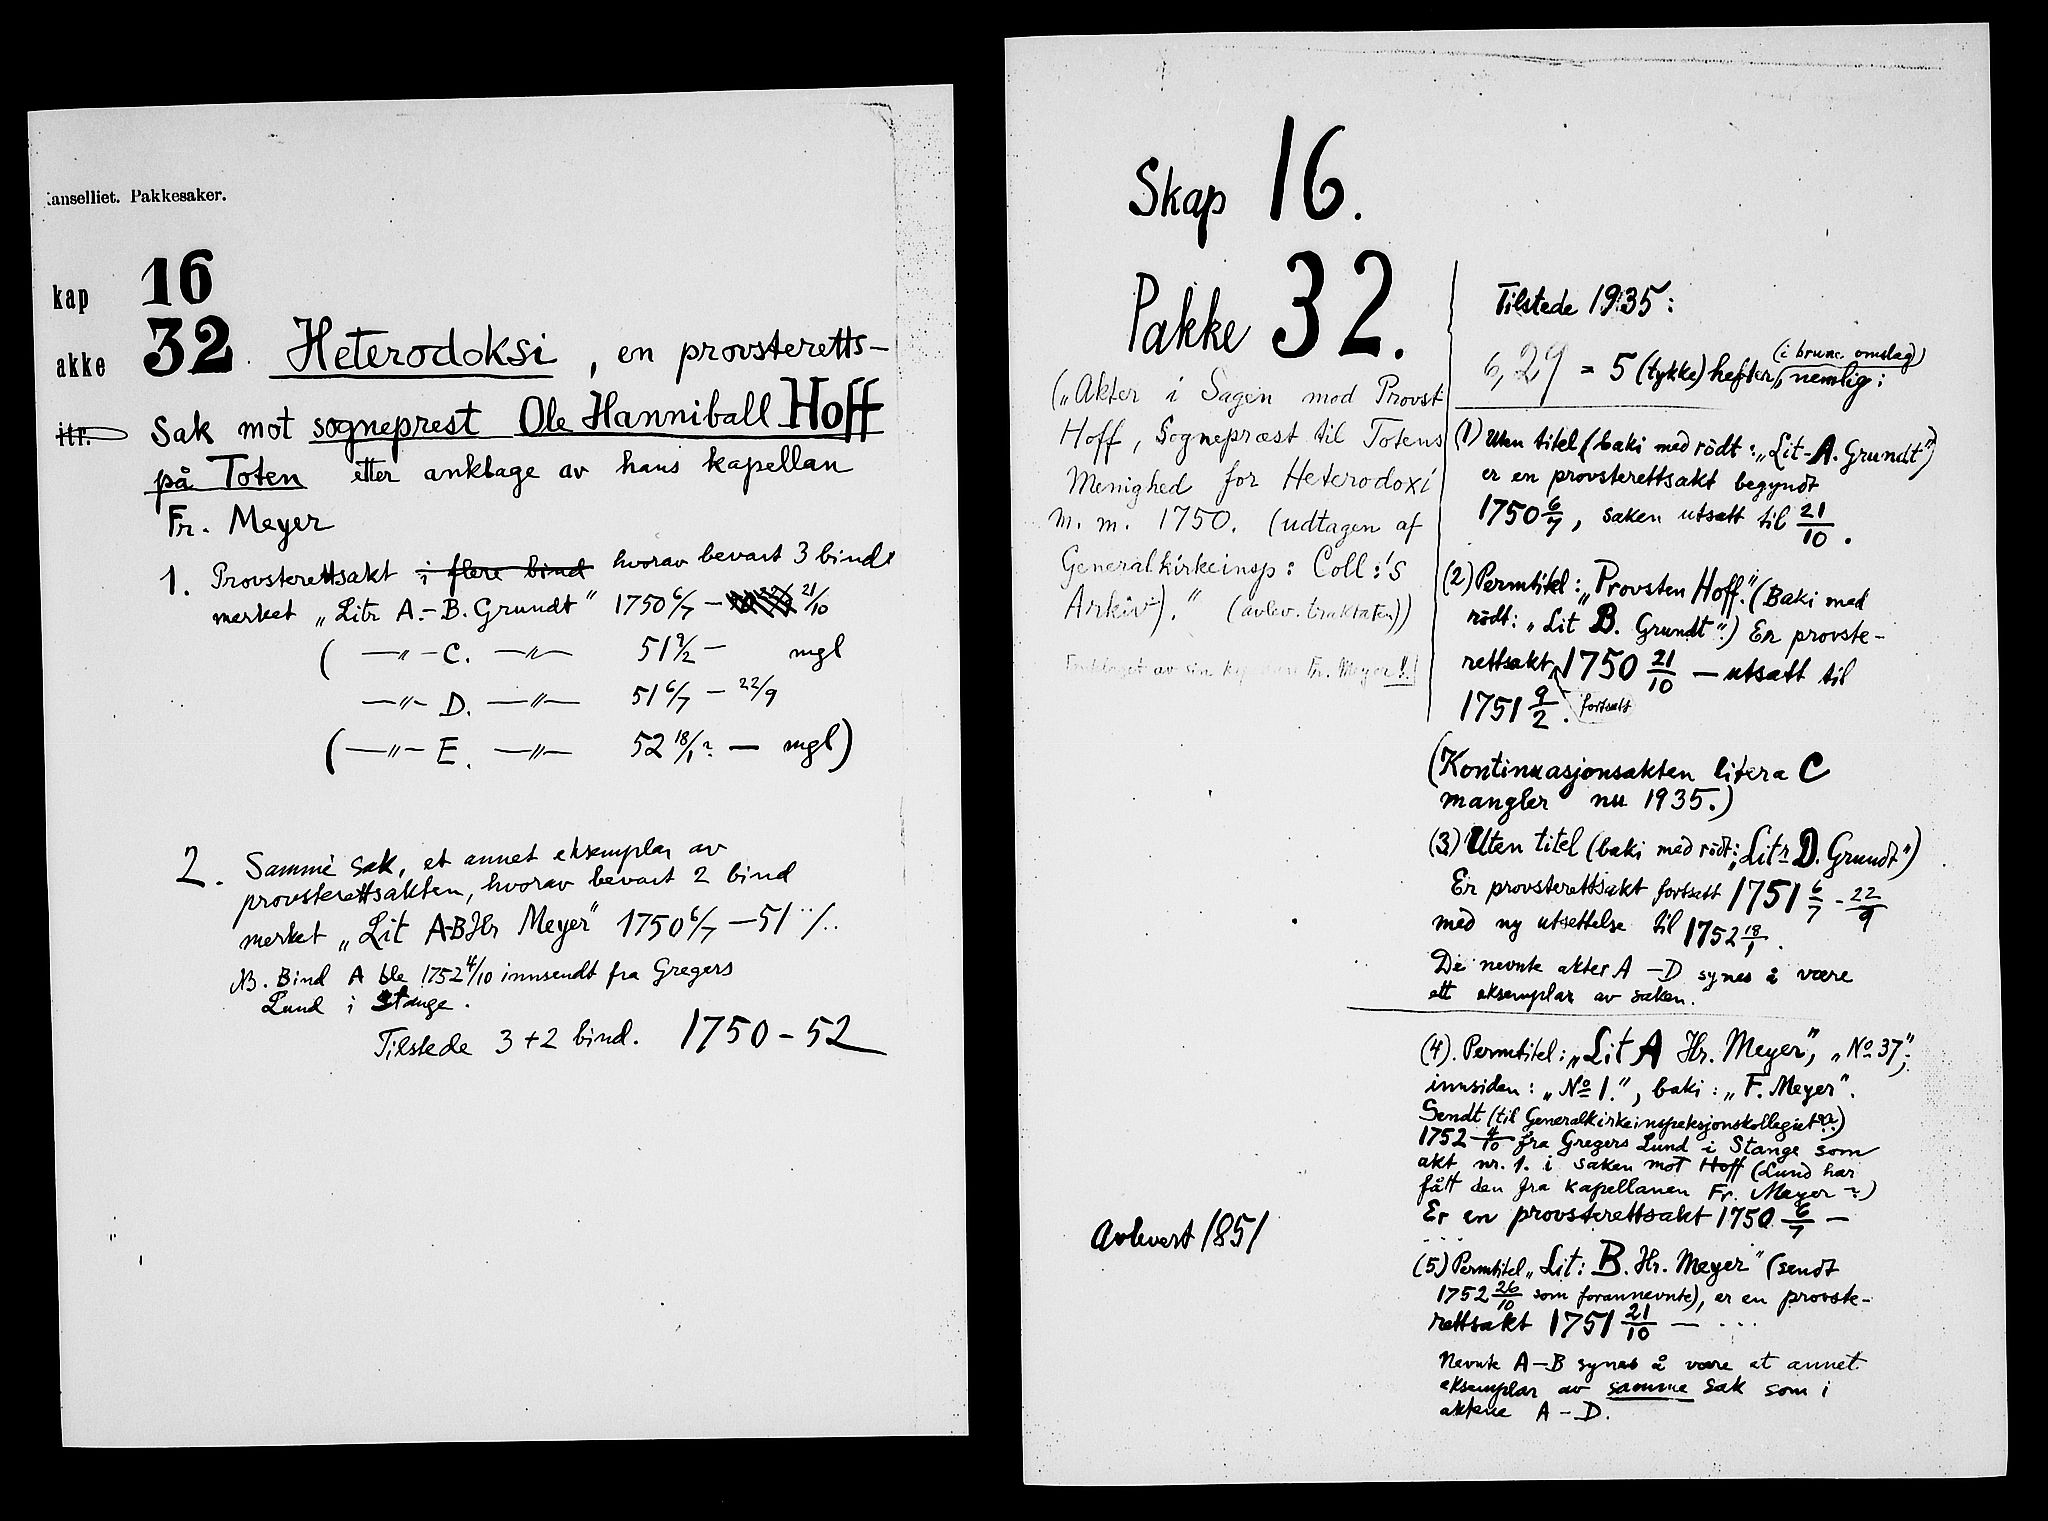 anselliet. Pakkesaker.
kap 16
akke 32. Heterodoksi, en provsteretts-
itr. Sak mot sogneprest Ole Hanniball Hoff
på Toten etter anklage av hans kapellan
Fr. Meyer
1. Provsterettsakt i flere bind hvorav bevart 3 bind
merket „Litr A.-B. Grundt" 1750 6/7 — 21/10
( —„— C. —„— 51 9/2 — mgl
—„— D. —„— 51 6/7 — 22/9
( —„— E. —„— 52 18/1? — mgl)
2. Samme sak, et annet eksemplar av
provsterettsakten, hvorav bevart 2 bind
merket „Lit A-B Hr Meyer" 1750 6/7 — 51 ../..
NB. Bind A ble 1752 4/10 innsendt fra Gregers
Lund i Stange.
Tilstede 3+2 bind. 1750-52
Skap 16.
Pakke 32.
(„Akter i Sagen mod Provst
Hoff, Sognepræst til Totens
Menighed for Heterodoxi
m. m. 1750. (udtagen af
Generalkirkeinsp: Coll:'s
Arkiv)." (avlev. traktaten))
av sin Fr. Meyer!!
Avlevert 1851
Tilstede 1935:
6,29 = 5 (tykke) hefter, (i brune omslag) nemlig:
(1) Uten titel (baki med rödt: „Lit-A. Grundt")
er en provsterettsakt begyndt
1750 6/7, saken utsatt til 21/10.
(2) Permtitel: „Provsten Hoff." (Baki med
rödt: „Lit B. Grundt".) Er provste-
rettsakt fortsatt 1750 21/10 — utsatt til
1751 9/2.
(Kontinuasjonsakten litera C
mangler nu 1935.)
(3) Uten titel (baki med rödt: „Litr D. Grundt")
Er provsterettsakt fortsatt 1751 6/7 - 22/9
med ny utsettelse til 1752 18/1.
De nevnte akter A — D synes å være
ett eksemplar av saken.
(4). Permtitel: „Lit A Hr. Meyer", „No 37";
innsiden: „No 1.", baki: „F. Meyer".
Sendt (til Generalkirkeinspeksjonskollegiet??)
1752 4/10 fra Gregers Lund i Stange som
akt nr. 1. i saken mot Hoff (Lund har
fått den fra kapellanen Fr. Meyer ?)
Er en provsterettsakt 1750 6/7 —
....
(5) Permtitel „Lit: B. Hr. Meyer" (sendt
1752 26/10 som forannevnte), er en provste-
rettsakt 1751 21/10 — ...
Nevnte A—B synes å være et annet
eksemplar av samme sak som i
aktene A — D.